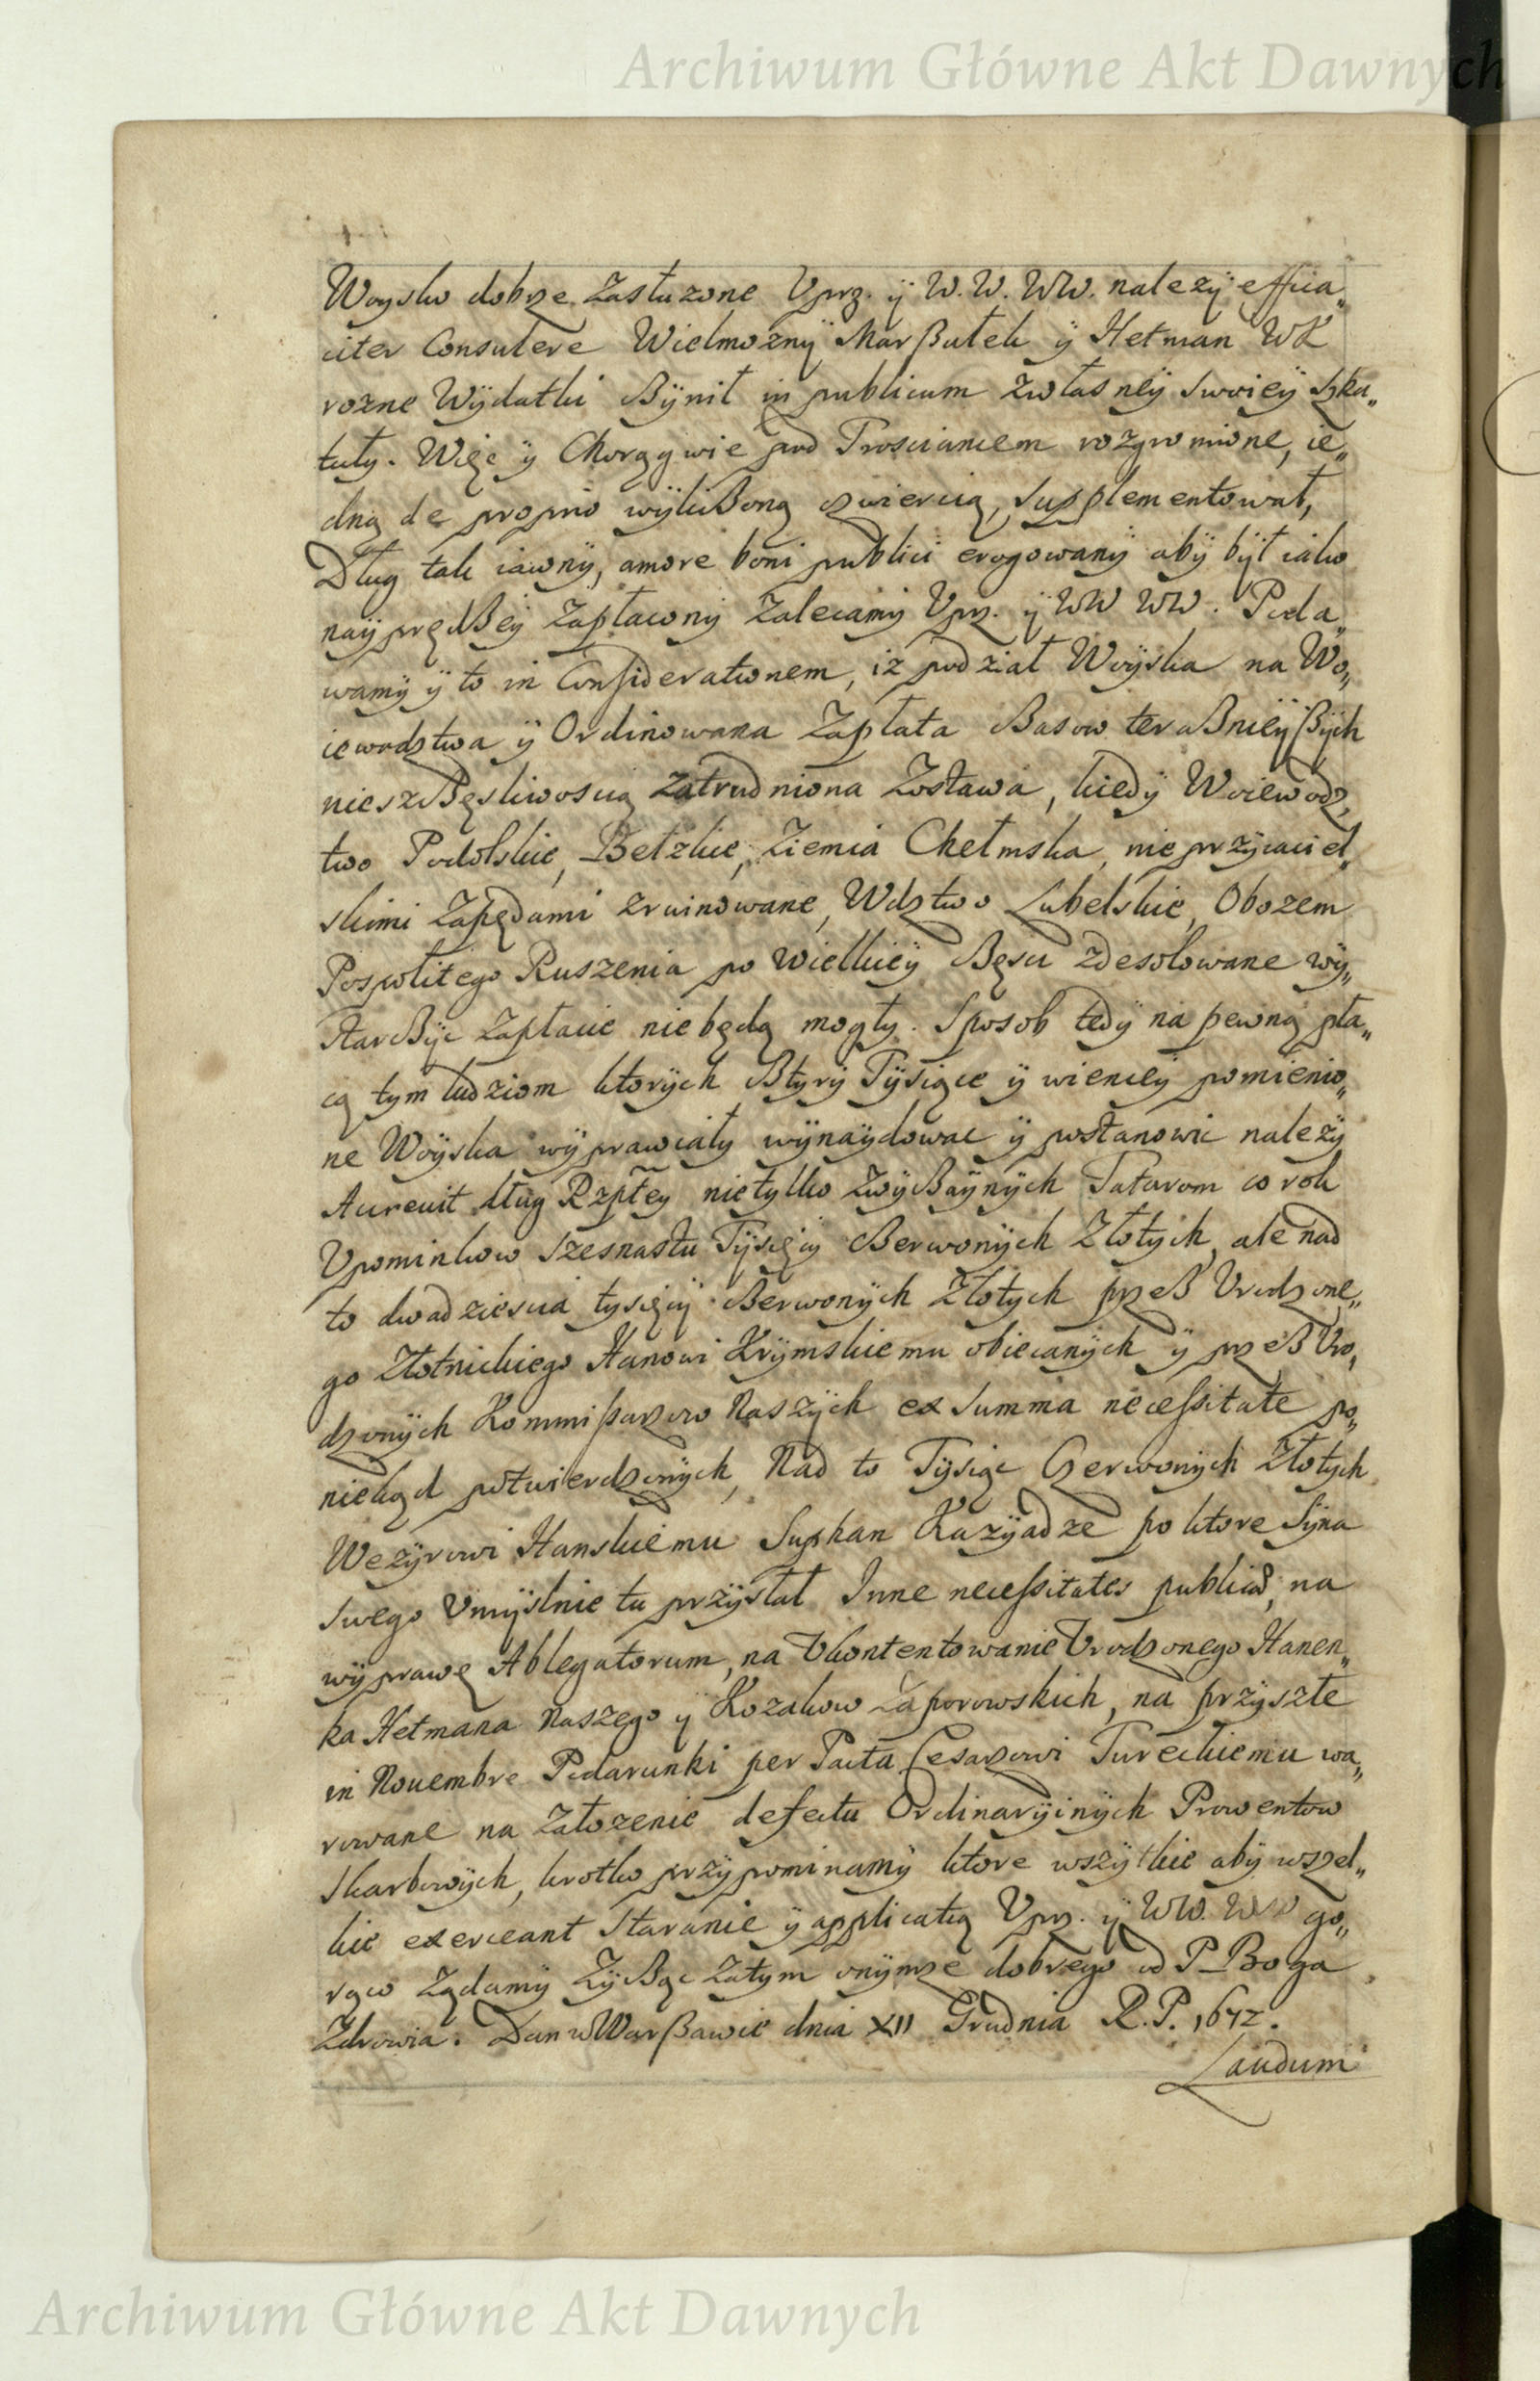 Archiwum Główne Akt Dawnych
Woysko dobrze zasłuzone Vprz. ÿ W. W. WW. nalezÿ effica„
citer Consulere Wielmoznÿ Marßałek ÿ Hetman WK
rozne Wÿdatki czÿnił in publicum zwłasneÿ swoieÿ szka„
tuły. Więc ÿ Chorągwie pod Trosciancem rozgromione, ie„
dną de proprio wÿliczoną czwiercią, supplementował,
Dług tak iawnÿ, amore boni publici erogowanÿ abÿ bÿł iako
naÿprędßeÿ zapłaconÿ zalecamÿ Vprz. ÿ WW WW. Poda„
wamÿ ÿ to in Considerationem, iz podział Woÿska na Wo„
iewodztwa ÿ Ordinowana zapłata czasow teraßnieÿßÿch
nieszczęsliwoscią zatrudniona zostawa, kiedÿ Woiewodz„
two Podolskie, Bełzkie, Ziemia Chełmska, nieprzÿiaciel„
skimi zapędami zruinowane, Wdztwo Lubelskie, Obozem
Pospolitego Ruszenia po wielkieÿ częsci zdesolowane wÿ„
starczÿc zapłacie niebędą mogły. Sposob tedÿ na pewną pła„
cą tym ludziom ktorÿch cztyrÿ Tÿsiące ÿ wiencey pomienio„
ne Woÿska wÿprawiałÿ wÿnaÿdowac ÿ postanowic nalezÿ
Accrevit dług Rzpłteÿ nietylko zwÿczaÿnÿch Tatarom co rok
Vpominkow szesnastu Tÿsięcÿ czerwonÿch Złotÿch, ale nad
to dwadziescia tysięcÿ czerwonÿch Złotych przeß Vrodzone„
go Złotnickiego Hanowi Krÿmskiemu obiecanÿch ÿ przeß Vro„
dzonÿch Kommißarzow Naszÿch ex summa necessitate po„
niekąd potwierdzonÿch, Nad to Tÿsiąc Czerwonÿch Złotych
Wezÿrowi Hanskiemu Suphan Kazÿadze po ktore sÿna
swego Vmÿslnie tu przÿsłał Inne necessitates publicas, na
wÿprawę Ablegatorum, na Vkontentowanie Vrodzonego Hanen„
ka Hetmana Naszego ÿ Kozakow Zaporowskich, na przÿszłe
in Nouembre Podarunki per Pacta Cesarzowi Tureckiemu wa„
rowane na załozenie defectu Ordinarÿinÿch Prowentow
Skarbowÿch, krotko przÿpominamÿ ktore wszÿtkie abÿ wszel„
kie exerceant staranie ÿ applicatią Vprz. ÿ WW. WW go„
rąco ządamÿ Zÿcząc zatym onÿmze dobrego od P Boga
Zdrowia. Dan w Warßawie dnia XII Grudnia R.P. 1672.
Laudum
Archiwum Główne Akt Dawnych